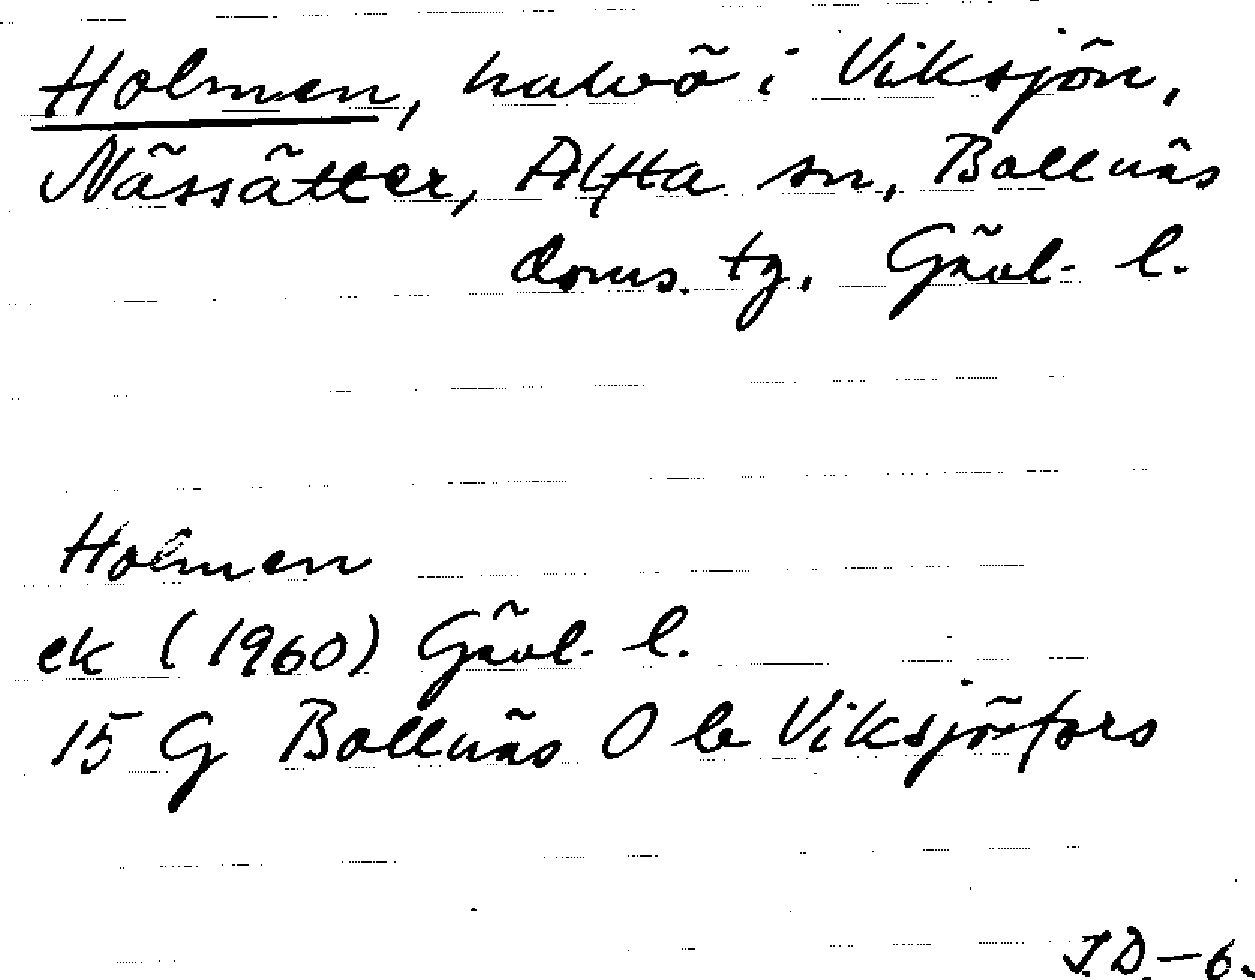 Holmen, halvö i Viksjön,
Nässätter, Alfta sn, Bollnäs
doms. tg. Gävl. l.
Holmen
ek (1960) Gävl. l.
15 G Bollnäs O b Viksjöfors